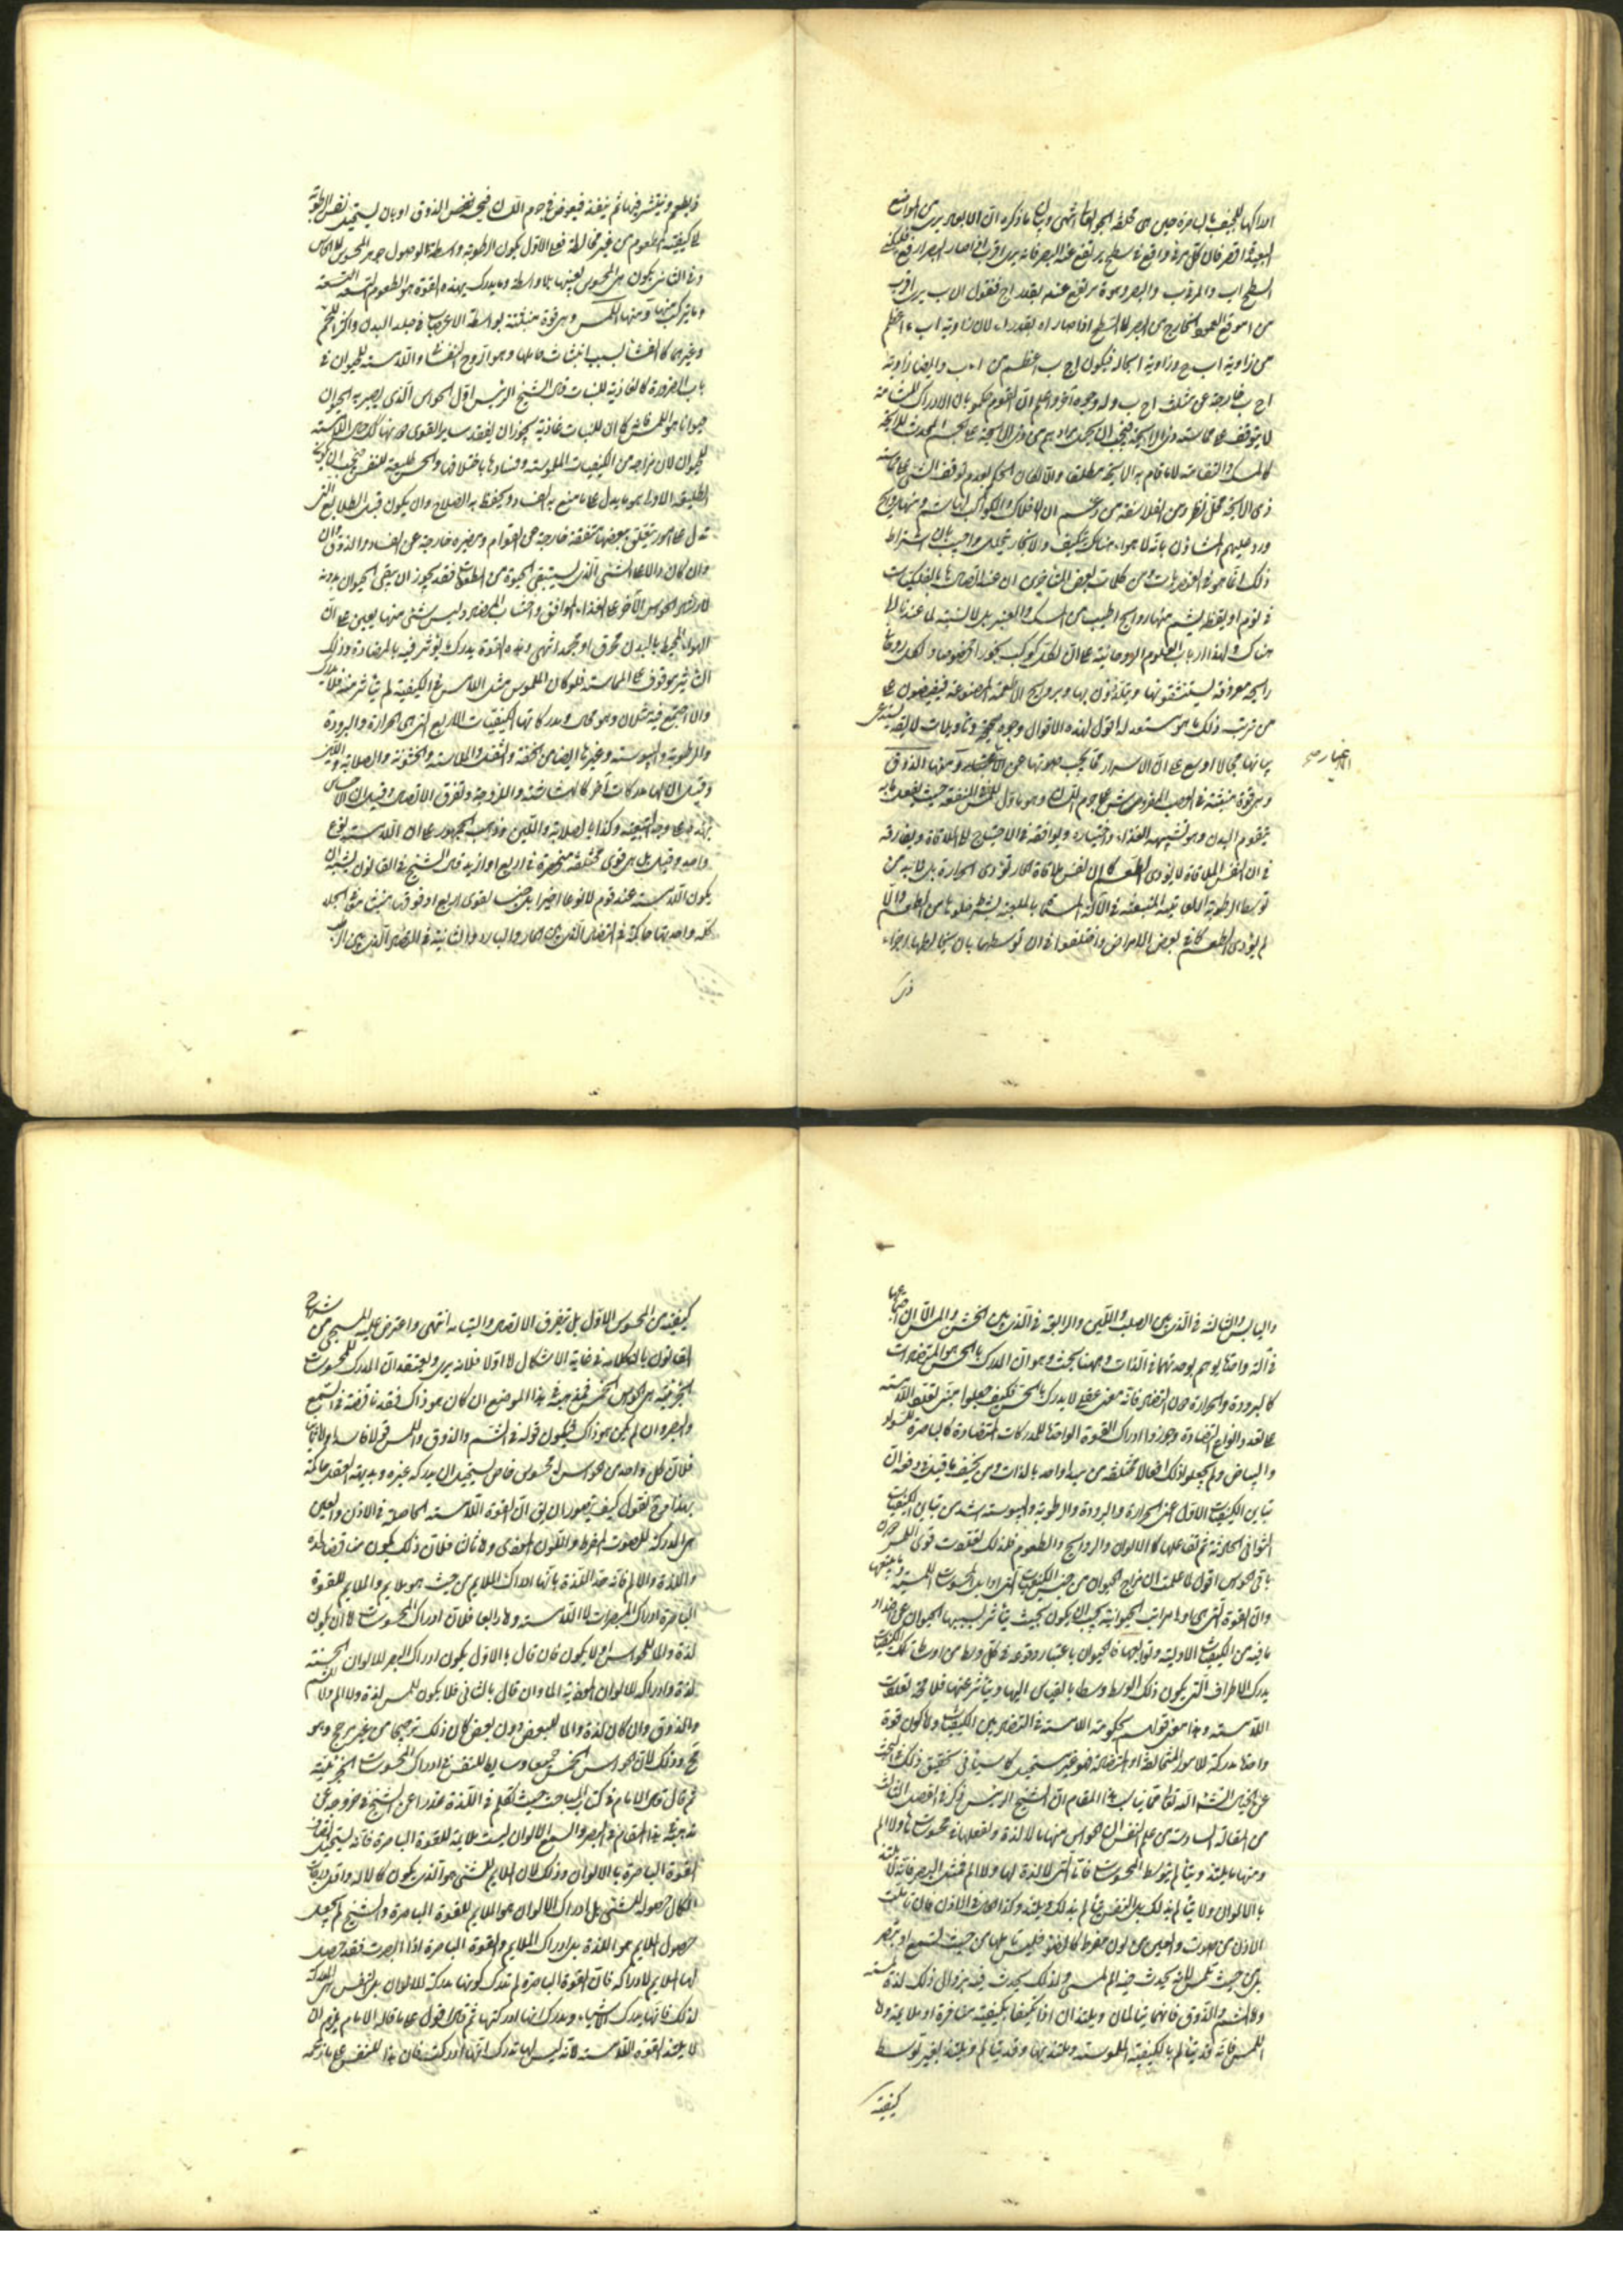 ادراكها للمجنف بالباصرة حين هى
البعيدة اقصر فان كل مرئى واقع فى سطح يرتفع عنه البصر فانه يرى اقرب اذا صار البصر ارفع
السطح اب والمرئى ب والبصر وهو ة يرتفع عنه بقدر اح فنقول ان ب يرى اقرب
من موقع العمود الخارج من البصر الى السطح اذا صار اه بقدر اء لان زاوية اب ء اعظم
من زاوية اب ح وزاوية ا بحالها فيكون اح ب اعظم من اء ب وايضا زاوية
اح ب خارجة عن مثلث اح ب وله وجوه اخر واعلم ان القوم حكموا بان الادراك للشامة
لا يتوقف على مماسته
كالمسك والتفاحة
ذى الرايحة محل نظر ومن الفلاسفة من زعم ان للافلاك والكواكب لها شم وفيها روايح
ورد عليهم المشاؤن بانه لا هواء هناك يتكيف ولا بخار يتحلل واجيب بان اشتراط
ذلك انما هو فى العنصريات ومن كلمات بعض المتاخرين ان عند اتصالى بالفلكيات
فى نوم او يقظة يشم منها روايح اطيب من المسك والعنبر بل لا نسبة لما عندنا لما
هناك ولهذا ارباب العلوم الروحانية على ان لكل كوكب بخورا مخصوصا ولكل روحانى
رايحة معروفة يستنشقونها ويتلذذون بها وبروايح الاطعمة المصنوعة فيفيضون على
من رتب ذلك ما هو مستعد له اقول لهذه الاقوال وجوه صحيحة وتاويلات لايقة يستدعى
بيانها مجالا اوسع على ان الاسرار مما يجب صونها عن الاغيار ومنها الذوق
الاغيار صح
وهى قوة منبثة فى العصب المفروش على جرم اللسان وهو تالى اللمس فى المنفعة حيث يفعل ما به
يتقوم البدن وهو تشهية الغذاء واختياره ويوافقه فى الاحتياج الى الملاقاة ويفارقه
فى ان نفس الملاقاة لا يؤدى الطعم كما ان نفس ملاقاة الحار تؤدى الحرارة بل لا بد من
توسط الرطوبة اللعابية المنبعثة عن الآلة المسماة بالملعبة بشرط خلوها من الطعم والا
لم يؤدى الطعم كما فى بعض الامراض واختلفوا فى ان توسطها بان يخالطها اجزاء
ذى
ذى طعم وينتشر فيها ثم ينفذ فيغوص فى جرم اللسان فيحس الذوق او بان يستحيل نفس الرطوبة
الى كيفية المطعوم من غير مخالطة فعلى الاول يكون الرطوبة واسطة لوصول جوهر المحسوس الى الحاس
وفى الثانى يكون هى المحسوس بعينها بلا واسطة وما يدرك بهذه القوة هو الطعوم التسعة
وما يتركب منها ومنها اللمس وهى قوة منبثة بواسطة الاعصاب فى جلد البدن واكثر اللحم
وغيرهما كالغشاء بسبب انبثاث حاملها وهو الروح
باب الضرورة كالغاذية للنبات قال الشيخ الرئيس اول الحواس الذى يصير به الحيوان
حيوانا هو اللمس فكما ان للنبات غاذية يجوز ان يفقد ساير القوى دونها كذلك حال اللامسة
للحيوان لان مزاجه من الكيفيات الملموسة وفساده باختلافها والحس طليعة للنفس فيجب ان يكون
الطليعة الاولى هو ما يدل على ما يقع به الفساد ويحفظ به الصلاح وان يكون قبل الطلايع التى
تدل على امور يتعلق ببعضها منفعة خارجة عن القوام ومضرة خارجة عن الفساد والذوق وان
كان دالا على الشئ الذى يستبقى الحيوة من المطعومات فقد يجوز ان يبقى الحيوان بدونه
لارشاد الحواس الآخر على الغذاء الموافق واجتناب المضر وليس شئ منها يعين على ان
الهواء المحيط بالبدن محرق او مجمد انتهى وهذه القوة يدرك ما يؤثر فيه بالمضادة وذلك
التاثير موقوف على المماسة فلو كان الملموس مثل اللامس فى الكيفية لم يتاثر منه فلا يدرك
والا اجتمع فيه مثلان وهو محال ومدركاتها الكيفيات الاربع التى هى الحرارة والبرودة
والرطوبة واليبوسة وغيرها ايضا من الخفة والثقل والملاسة والخشونة والصلابة واللين
وقيل ان لها مدركات آخر كالهشاشة واللزوجة وتفرق الاتصال وقيل ان الاحساس
بهذه على وجه التبعية وكذا بالصلابة واللين وذهب الجمهور على ان اللامسة نوع
واحد وقيل بل هى قوى مختلفة منحصرة فى اربع او ازيد قال الشيخ فى القانون يشبه ان
يكون اللامسة عند قوم لا نوعا اخيرا بل جنسا لقوى اربع او فوقها منبثة معا فى الجلد
كله واحديتها حاكمة فى التضاد الذى بين الحار والبارد والثانية فى التضاد الذى بين الرطب
واليابس والثالثة فى الذى بين الصلب واللين والرابعة فى الذى بين الخشن والاملس الا ان اجتماعها
فى آلة واحدة يوهم بوحدتها فى الذات وههنا بحث وهو ان المدرك بالحس هو المتضادات
كالبرودة والحرارة دون التضاد فانه معنى عقلى لا يدرك بالحس فكيف جعلوا مبنى تعدد اللامسة
على تعدد انواع التضاد وجوزوا ادراك القوة الواحدة للمدركات المتضادة كالباصرة للسواد
والبياض ولم يجعلوا ذلك افعالا مختلفة من مبدا واحد بالذات
تباين الكيفيات الاول اعنى الحرارة والبرودة والرطوبة واليبوسة اشد من تباين الكيفيات
الثوانى الحادثة من تفاعلها كالالوان والروايح والطعوم فلذلك تعددت قوى اللمس دون
باقى الحواس اقول لما علمت ان مزاج الحيوان من جنس الكيفيات التى هى اوايل المحسوسات اللمسية وتابعها
وان القوة التى هى اولى مراتب الحيوانية يجب ان يكون بحيث يتاثر بسببها الحيوان عن اضداد
ما فيه من الكيفيات الاولية وتوابعها فالحيوان باعتبار وقوعه فى كل وسط من اوساط تلك الكيفيات
يدرك الاطراف التى يكون ذلك الوسط وسطا بالقياس اليها ويتاثر عنها فلا محة تعددت
اللامسة وهذا معنى قولهم بحكومة اللامسة فى التضاد بين الكيفيات واما كون قوة
واحدة مدركة للامور المتخالفة او المتضادة فهو غير مستحيل كما سياتى تحقيق ذلك
عن انشاء الله تعالى ومما يناسب هذا المقام ان الشيخ الرئيس ذكر فى الفصل الثالث
من المقالة السادسة من علم النفس ان الحواس منها ما لا لذة ولفعلها فى محسوساتها ولا الم
ومنها ما يلتذ ويتألم بتوسط المحسوسات فاما التى لا لذة لها ولا الم فمثل البصر فانه لا يلتذ
بالالوان ولا يتألم بذلك بل النفس تتألم بذلك ويلتذ وكذا الحال فى الاذن فان تألمت
الاذن من صوت والعين من لون مفرط كالضوء فليس تألمها من حيث تسمع او تبصر
بل من حيث تلمس لانه يحدث فيه الم لمسى وكذلك يحدث فيه بزوال ذلك لذة لمسية
واما الشم والذوق فانهما يتألمان ويلتذان اذا تكيفا بكيفية منافرة او ملايمة واما
اللمس فانه قد يتألم بالكيفية الملموسة ويلتذ بها وقد يتألم ويلتذ بغير توسط
كيفية
كيفية من المحسوس الاول بل بتفرق الاتصال والتيامه انتهى واعترض عليه المسيحى من شراح
القانون بان كلامه فى غاية الاشكال اما اولا فلانه يرى ويعتقد ان المدرك للمحسوسات
الجزئية هى الحواس الخمس فمذهبه فى هذا الموضع ان كان هو ذاك فقد ناقضه فى السمع
والبصر وان لم يكن هو ذاك فيكون قوله فى الشم والذوق واللمس قولا فاسدا واما ثانيا
فلان كل واحد من الحواس له محسوس خاص يستحيل ان يدركه غيره وبديهة العقل حاكمة
بهذا فح نقول كيف يتصور ان يق ان القوة اللامسة الحاصلة فى الاذن والعين
هى المدركة للصوت المفرط واللون الموذى واما ثالثا فلان ذلك يكون مناقضا لحده
اللذة والالم فانه حد اللذة بانها ادراك الملايم من حيث هو ملايم والملايم للقوة
الباصرة ادراك المبصرات لا اللامسة واما رابعا فلان ادراك المحسوسات اما ان يكون
لذة والما للحواس اولا يكون فان قال بالاول يكون ادراك البصر للالوان الحسنة
لذة وادراكه للالوان الموذية الما وان قال بالثانى فلا يكون للمس لذة ولا الم ولا للشم
والذوق وان كان لذة والما للبعض دون بعض كان ذلك ترجيحا من غير مرجح وهو
مح وذلك لان الحواس الخمس جميعا وسايط للنفس فى ادراك المحسوسات الجزئية
ثم قال قال الامام فى كتاب المباحث حيث تكلم فى اللذة عذرا عن الشيخ فى خروجه عن
مذهبه فى هذا المقام فى البصر والسمع الالوان ليست ملايمة للقوة الباصرة فانه يستحيل اتصاف
القوة الباصرة بالالوان وذلك لان الملايم للشئ هو الذى يكون كمالا له واقل درجات
الكمال حصوله للشئ بل ادراك الالوان هو الملايم للقوة الباصرة والشيخ لم يجعل
حصول الملايم هو اللذة بل ادراك الملايم والقوة الباصرة اذا ابصرت فقد حصل
لها الملايم لا ادراكه فان القوة الباصرة لم تدرك كونها مدركة للالوان بل النفس هى المدركة
لذلك فانها يدرك الاشياء ويدرك انها ادركتها ثم قال اقول على ما قاله الامام يلزم ان
لا يلتذ القوة اللامسة لانه ليس لها ان تدرك انها ادركت فان هذا للنفس على ما زعمه